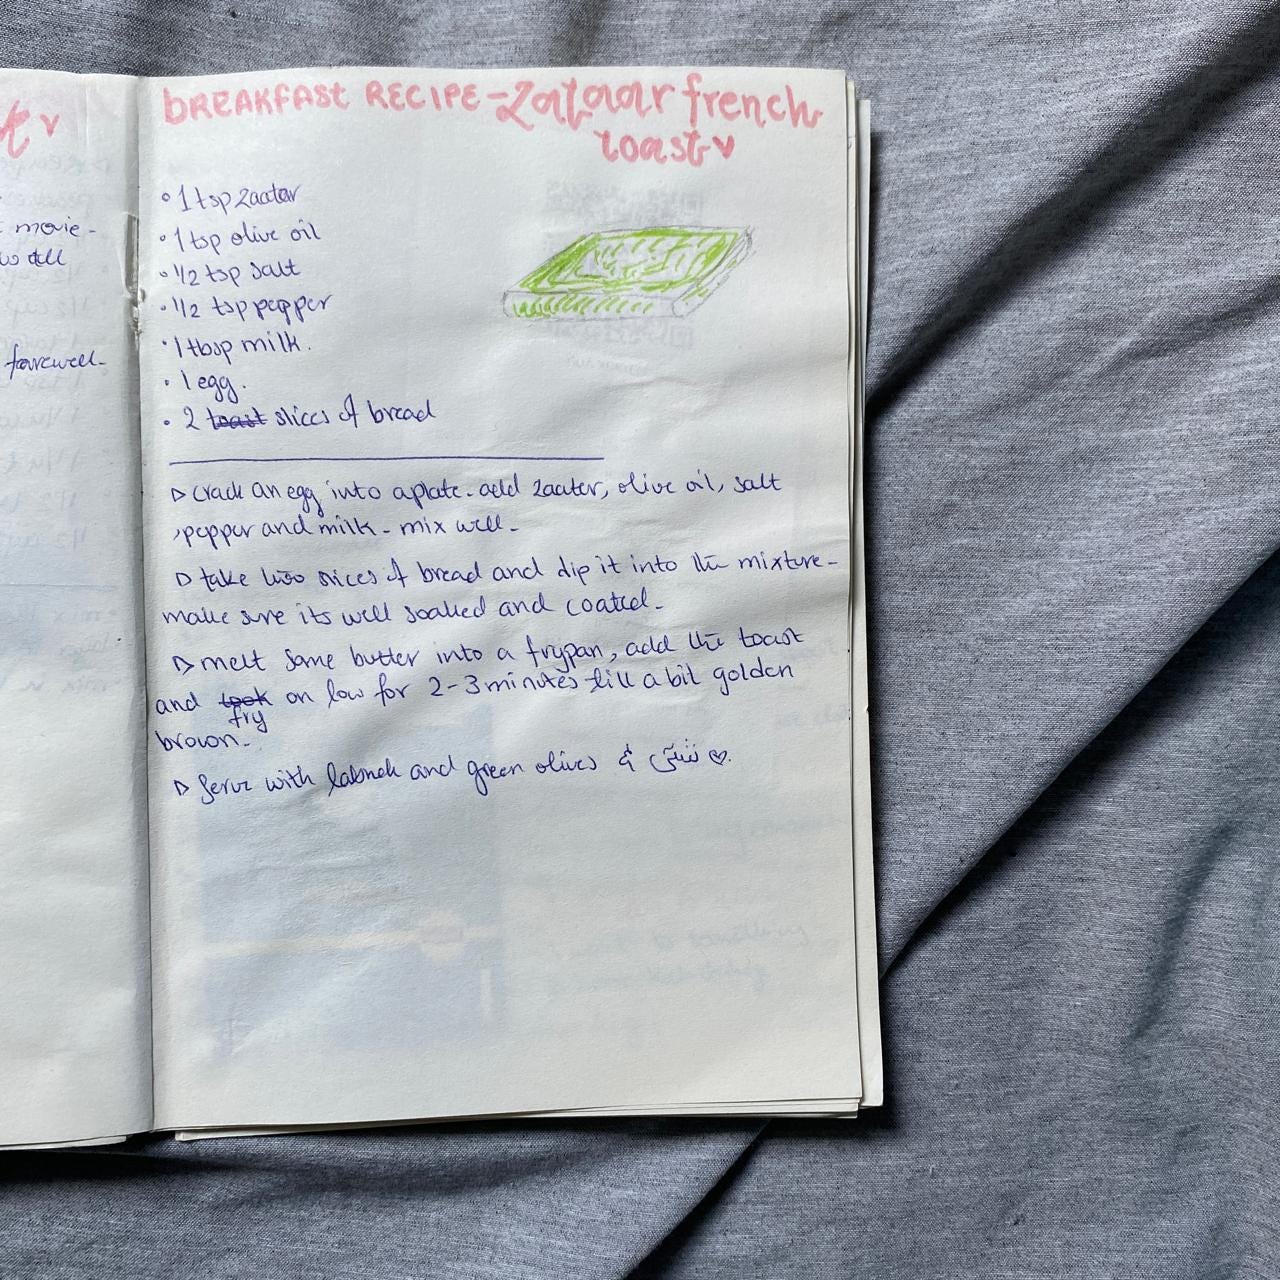 t
movie-
farewell-
BREAKFAST RECIPE - Zataar french
toast
• 1 tsp zaatar
• 1 tsp olive oil
• 1/2 tsp salt
• 1/2 tsp pepper
• 1 tbsp milk.
• 1 egg.
• 2 toast slices of bread
▷ crack an egg into a plate. add zaatar, olive oil, salt
,pepper and milk - mix well -
▷ take two slices of bread and dip it into the mixture -
make sure its well soaked and coated -
▷ melt some butter into a frypan, add the toast
and on low for 2-3 minutes till a bit golden
fry
brown -
▷ serve with labneh and green olives & ♡.